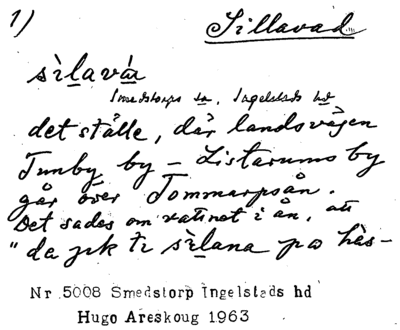 1) Sillavad
sìlavár
Smedstorps sn, Ingelstads hd
det ställe, där landsvägen
Tunby by – Listarums by
går över Tommarpsån.
Det sades om vattnet i ån, att
"da jek te sìlana på häs–
Nr 5008 Smedstorp Ingelstads hd
Hugo Areskoug 1963